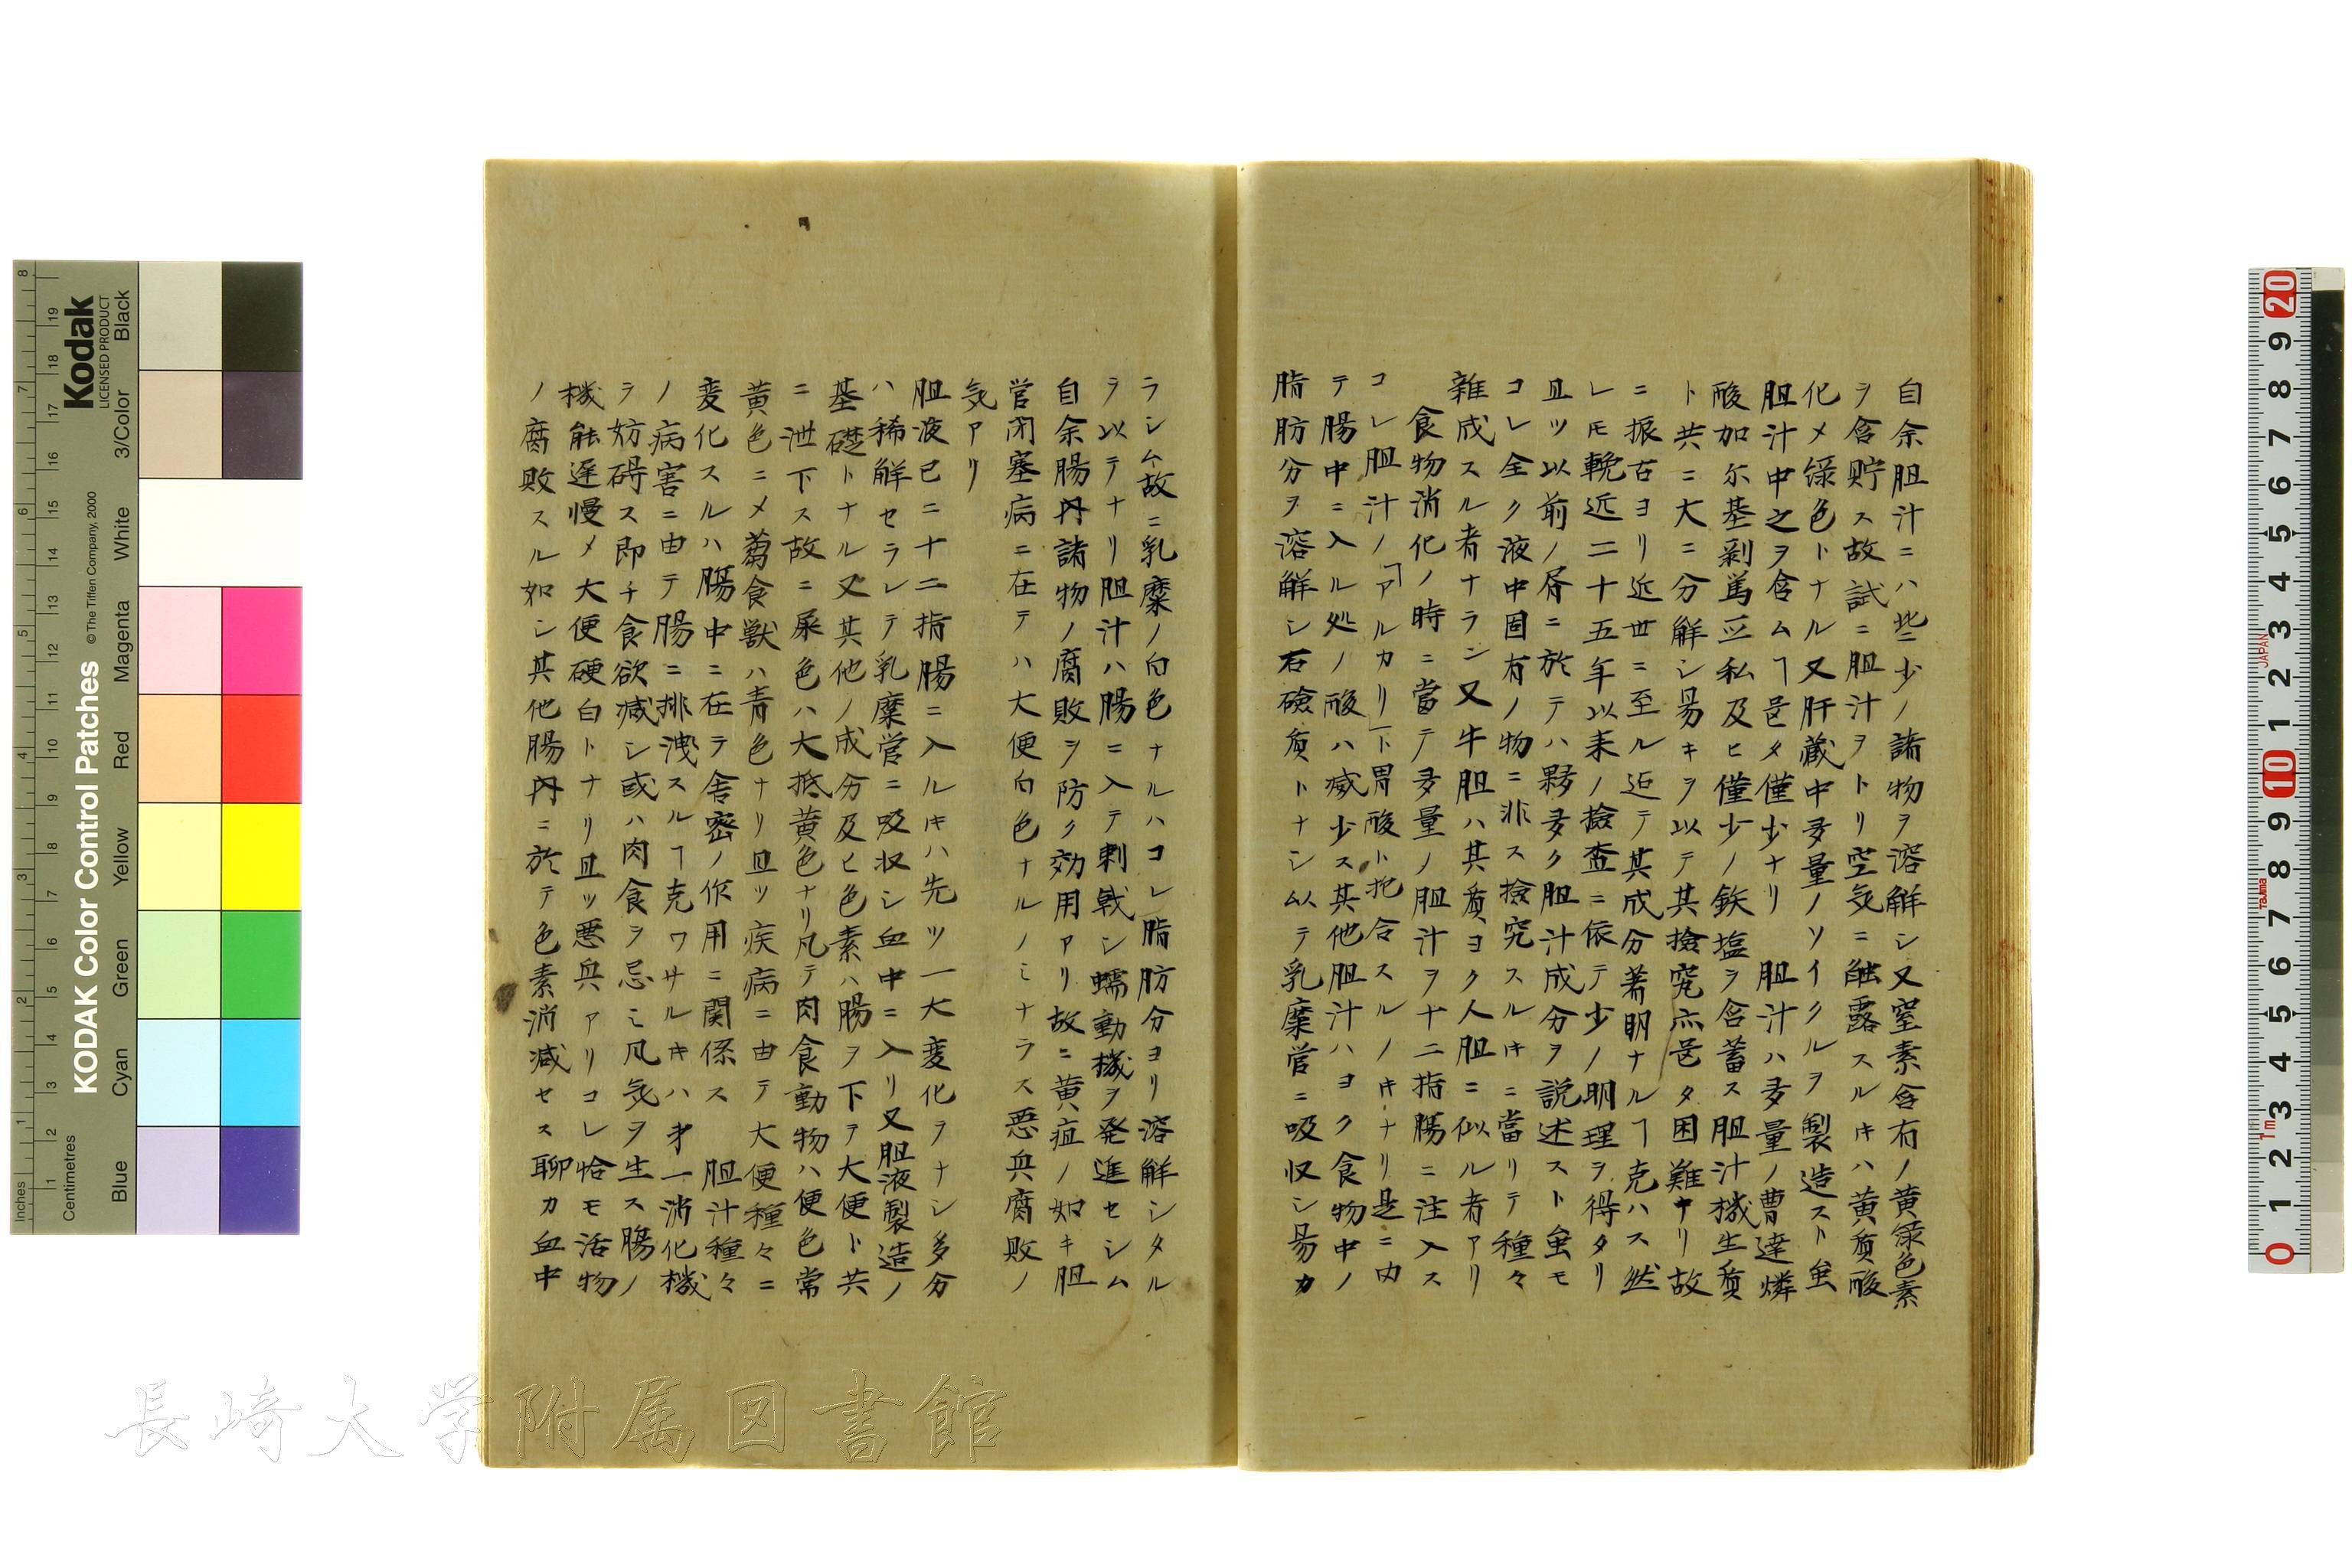 自余胆汁ニハ些少ノ諸物ヲ溶解シ又窒素含有ノ黄緑色素
ヲ含貯ス故試ニ胆汁ヲトリ空気ニ触露スルキハ黄質酸
化メ緑色トナル又肝蔵中多量ノソイクルヲ製造スト虽
胆汁中之ヲ含ムヿ邑メ僅少ナリ 胆汁ハ多量ノ曹達燐
酸加尓基剥篤亜私及ヒ僅少ノ鉄塩ヲ含蓄ス胆汁機生質
ト共ニ大ニ分解シ易キヲ以テ其撿究亦邑タ困難ナリ故
ニ振古ヨリ近世ニ至ル迠テ其成分著明ナルヿ克ハス然
レモ輓近二十五年以来ノ撿査ニ依テ少ノ明理ヲ得タリ
且ツ以前ノ屑ニ於テハ夥多ク胆汁成分ヲ説述スト虽モ
コレ全ク液中固有ノ物ニ非ス撿究スルキニ當リテ種々
雑成スル者ナラン又牛胆ハ其質ヨク人胆ニ似ル者アリ
食物消化ノ時ニ當テ多量ノ胆汁ヲ十二指腸ニ注入ス
コレ胆汁ノ「アルカリ」ト胃酸ト抱合スルノキナリ是ニ由
テ腸中ニ入ル処ノ酸ハ减少ス其他胆汁ハヨク食物中ノ
脂肪分ヲ溶解シ石礆質トナシ以テ乳糜管ニ吸収シ易カ
ラシム故ニ乳糜ノ白色ナルハコレ脂肪分ヨリ溶解シタル
ヲ以テナリ胆汁ハ腸ニ入テ刺戟シ蠕動機ヲ発進セシム
自余腸内諸物ノ腐敗ヲ防ク効用アリ故ニ黄疸ノ如キ胆
管闭塞病ニ在テハ大便白色ナルノミナラス悪臭腐敗ノ
気アリ
胆液已ニ十二指腸ニ入ルキハ先ツ一大変化ヲナシ多分
ハ稀解セラレテ乳糜管ニ吸収シ血中ニ入リ又胆液製造ノ
基礎トナル又其他ノ成分及ヒ色素ハ腸ヲ下テ大便ト共
ニ泄下ス故ニ屎色ハ大抵黄色ナリ凡テ肉食動物ハ便色常
黄色ニメ蒭食獣ハ青色ナリ且ツ疾病ニ由テ大便種々ニ
変化スルハ腸中ニ在テ舎密ノ作用ニ関係ス 胆汁種々
ノ病害ニ由テ腸ニ排洩スルヿ克ワサルキハ才一消化機
ヲ妨碍ス即チ食欲减シ或ハ肉食ヲ忌ミ凡気ヲ生ス腸ノ
機能遅慢メ大便硬白トナリ且ツ悪臭アリコレ恰モ活物
ノ腐敗スル如シ其他腸内ニ於テ色素消减セス聊カ血中
長崎大学附属図書館
Kodak
LICENSED PRODUCT
KODAK Color Control Patches
© The Tiffen Company, 2000
Inches
Centimetres
Blue
Cyan
Green
Yellow
Red
Magenta
White
3/Color
Black
JAPAN
Tajima